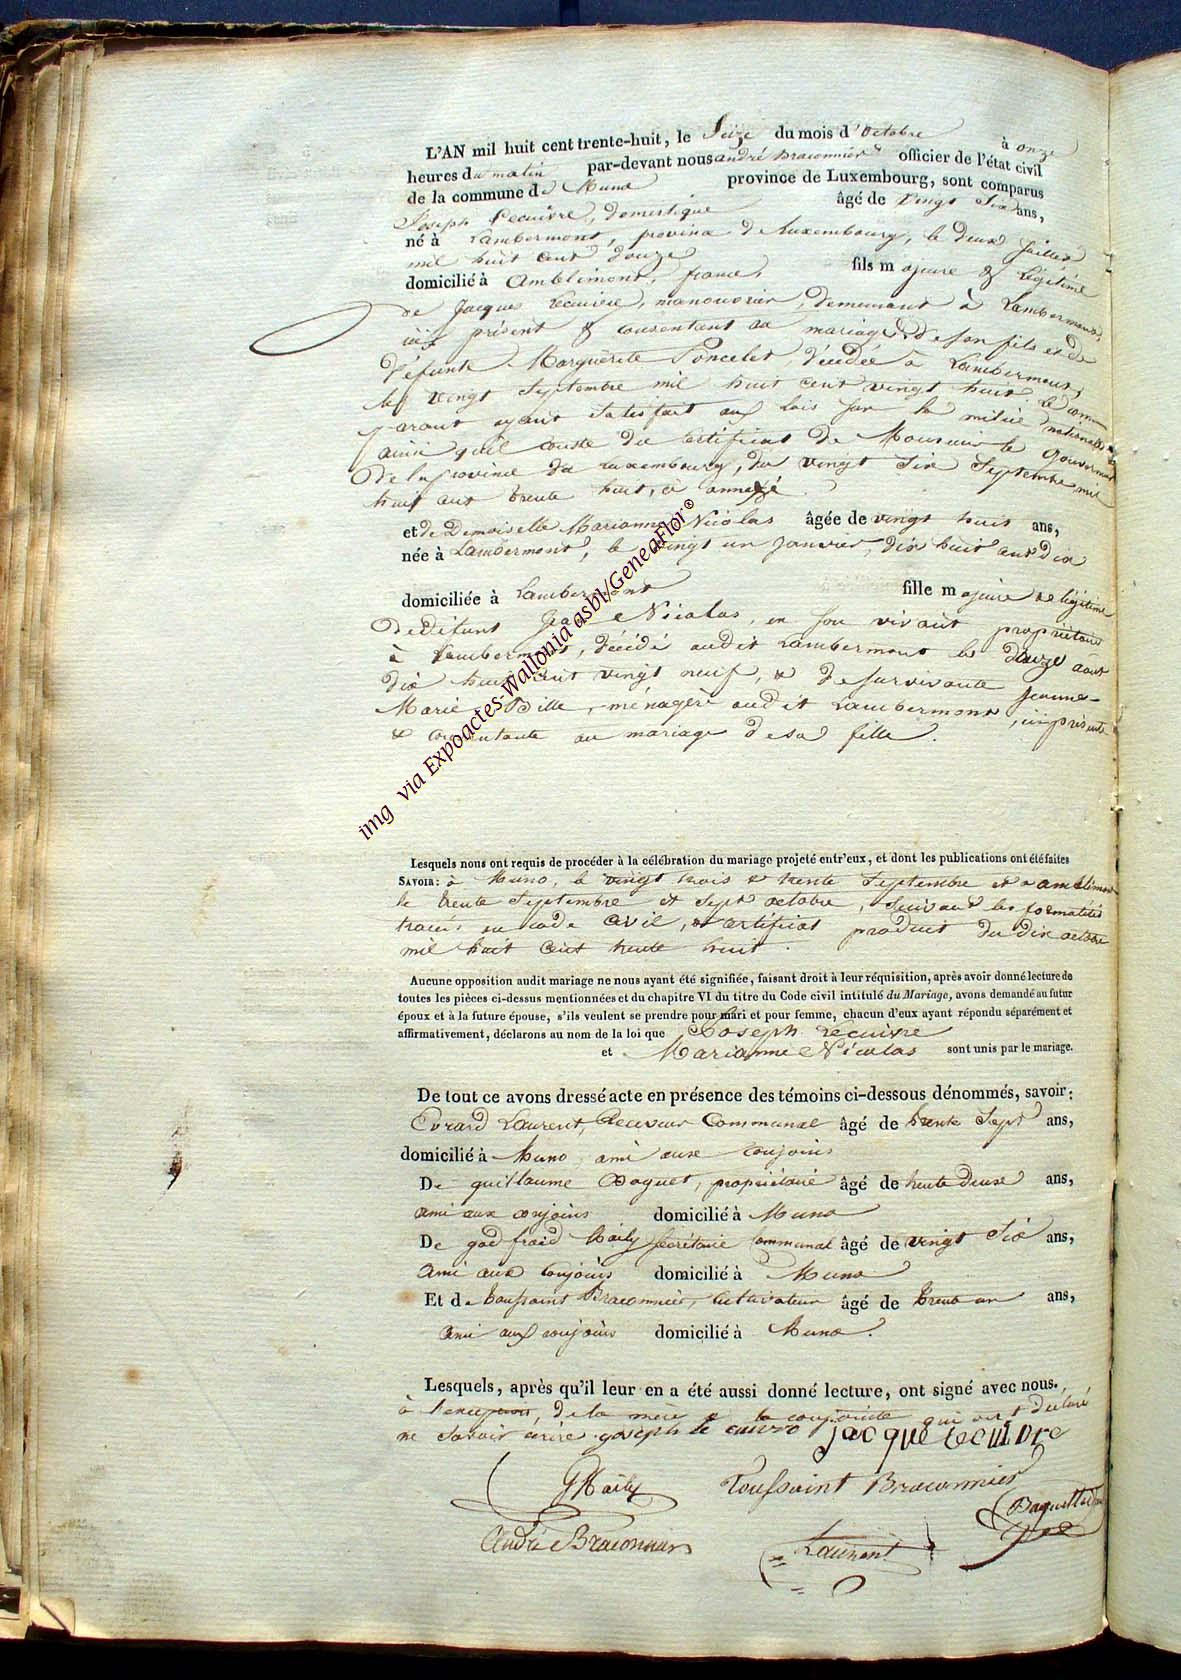 L'AN mil huit cent trente-huit, le Seize du mois d'Octobre à onze
heures du matin par-devant nous andré Braconnier officier de l'état civil
de la commune de Muno province de Luxembourg, sont comparus
Joseph Lecuivre, domestique âgé de vingt Six ans,
né à Lambermont, province de Luxembourg, le deux Juillet
mil huit cent douze
domicilié à Amblimont, france, fils majeure & légitime
de Jacques Lecuivre, manouvrier, demeurant à Lambermont,
ici présent & consentant au mariage de son fils et de
défunte Marguerite Poncelet, décédée à Lambermont,
le vingt Septembre mil huit cent vingt huit, le com
parant ayant satisfait aux lois sur la milice nationale
ainsi qu'il conste du certificat de Monsieur le gouverneur
de la province du Luxembourg, du vingt Six Septembre mil
huit cent trente huit, ci annexé.
et de Demoiselle Marianne Nicolas âgée de vingt huit ans,
née à Lambermont, le vingt un Janvier, dix huit cent dix
domiciliée à Lambermont fille majeure & légitime
de défunt Jean Nicolas, en son vivant propriétaire
à Lambermont, décédé audit Lambermont le douze aout
dix huit cent vingt neuf, & de survivante Jeanne-
Marie Bille, ménagère audit Lambermont, ici présente
& consentante au mariage de sa fille.
img via Expoactes-Wallonia asbl/GeneaFlor®
Lesquels nous ont requis de procéder à la célébration du mariage projeté entr'eux, et dont les publications ont été faites
SAVOIR: à Muno, le vingt trois & trente Septembre et à amblimont
le trente Septembre et Sept octobre, suivant les formalités
tracées au code civil, & certificat produit du dix octobre
mil huit cent trente huit.
Aucune opposition audit mariage ne nous ayant été signifiée, faisant droit à leur réquisition, après avoir donné lecture de
toutes les pièces ci-dessus mentionnées et du chapitre VI du titre du Code civil intitulé du Mariage, avons demandé au futur
époux et à la future épouse, s'ils veulent se prendre pour mari et pour femme, chacun d'eux ayant répondu séparément et
affirmativement, déclarons au nom de la loi que Joseph Lecuivre
et Marianne Nicolas sont unis par le mariage.
De tout ce avons dressé acte en présence des témoins ci-dessous dénommés, savoir:
Evrard Laurent, Receveur Communal âgé de trente Sept ans,
domicilié à Muno, ami aux conjoins
De guillaume Baquet, propriétaire âgé de trente deux ans,
ami aux conjoins domicilié à Muno
De godfroid Maily Secrétaire Communal âgé de vingt Six ans,
ami aux conjoins domicilié à Muno
Et de toussaint Braconnier, cultivateur âgé de trente un ans,
ami aux conjoins domicilié à Muno.
Lesquels, après qu'il leur en a été aussi donné lecture, ont signé avec nous,
à l'exception, de la mère & la conjointe qui ont déclaré
ne savoir écrire. joseph le cuivre jacque lecuivre
GMaily Toussaint Braconnier
Baquet
André Braconnier Laurent